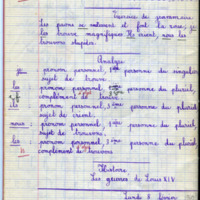 Exercice de grammaire.
Les paons se estiment et font la roue, je
les trouve magnifiques. Ils crient, nous les
trouvons stupides.
Analyse
je pronom personnel, 1ère personne du singulier
sujet de trouve.
les pronom personnel, 3ème personne du pluriel,
complément de trouve
ils pronom personnel, 3ème personne du pluriel
sujet de crient.
nous : pronom personnel, 1ère personne du pluriel,
sujet de trouvons.
les pronom personnel, 3ème personne du pluriel
complément de trouvons
Histoire
Les guerres de Louis XIV
Lundi 8